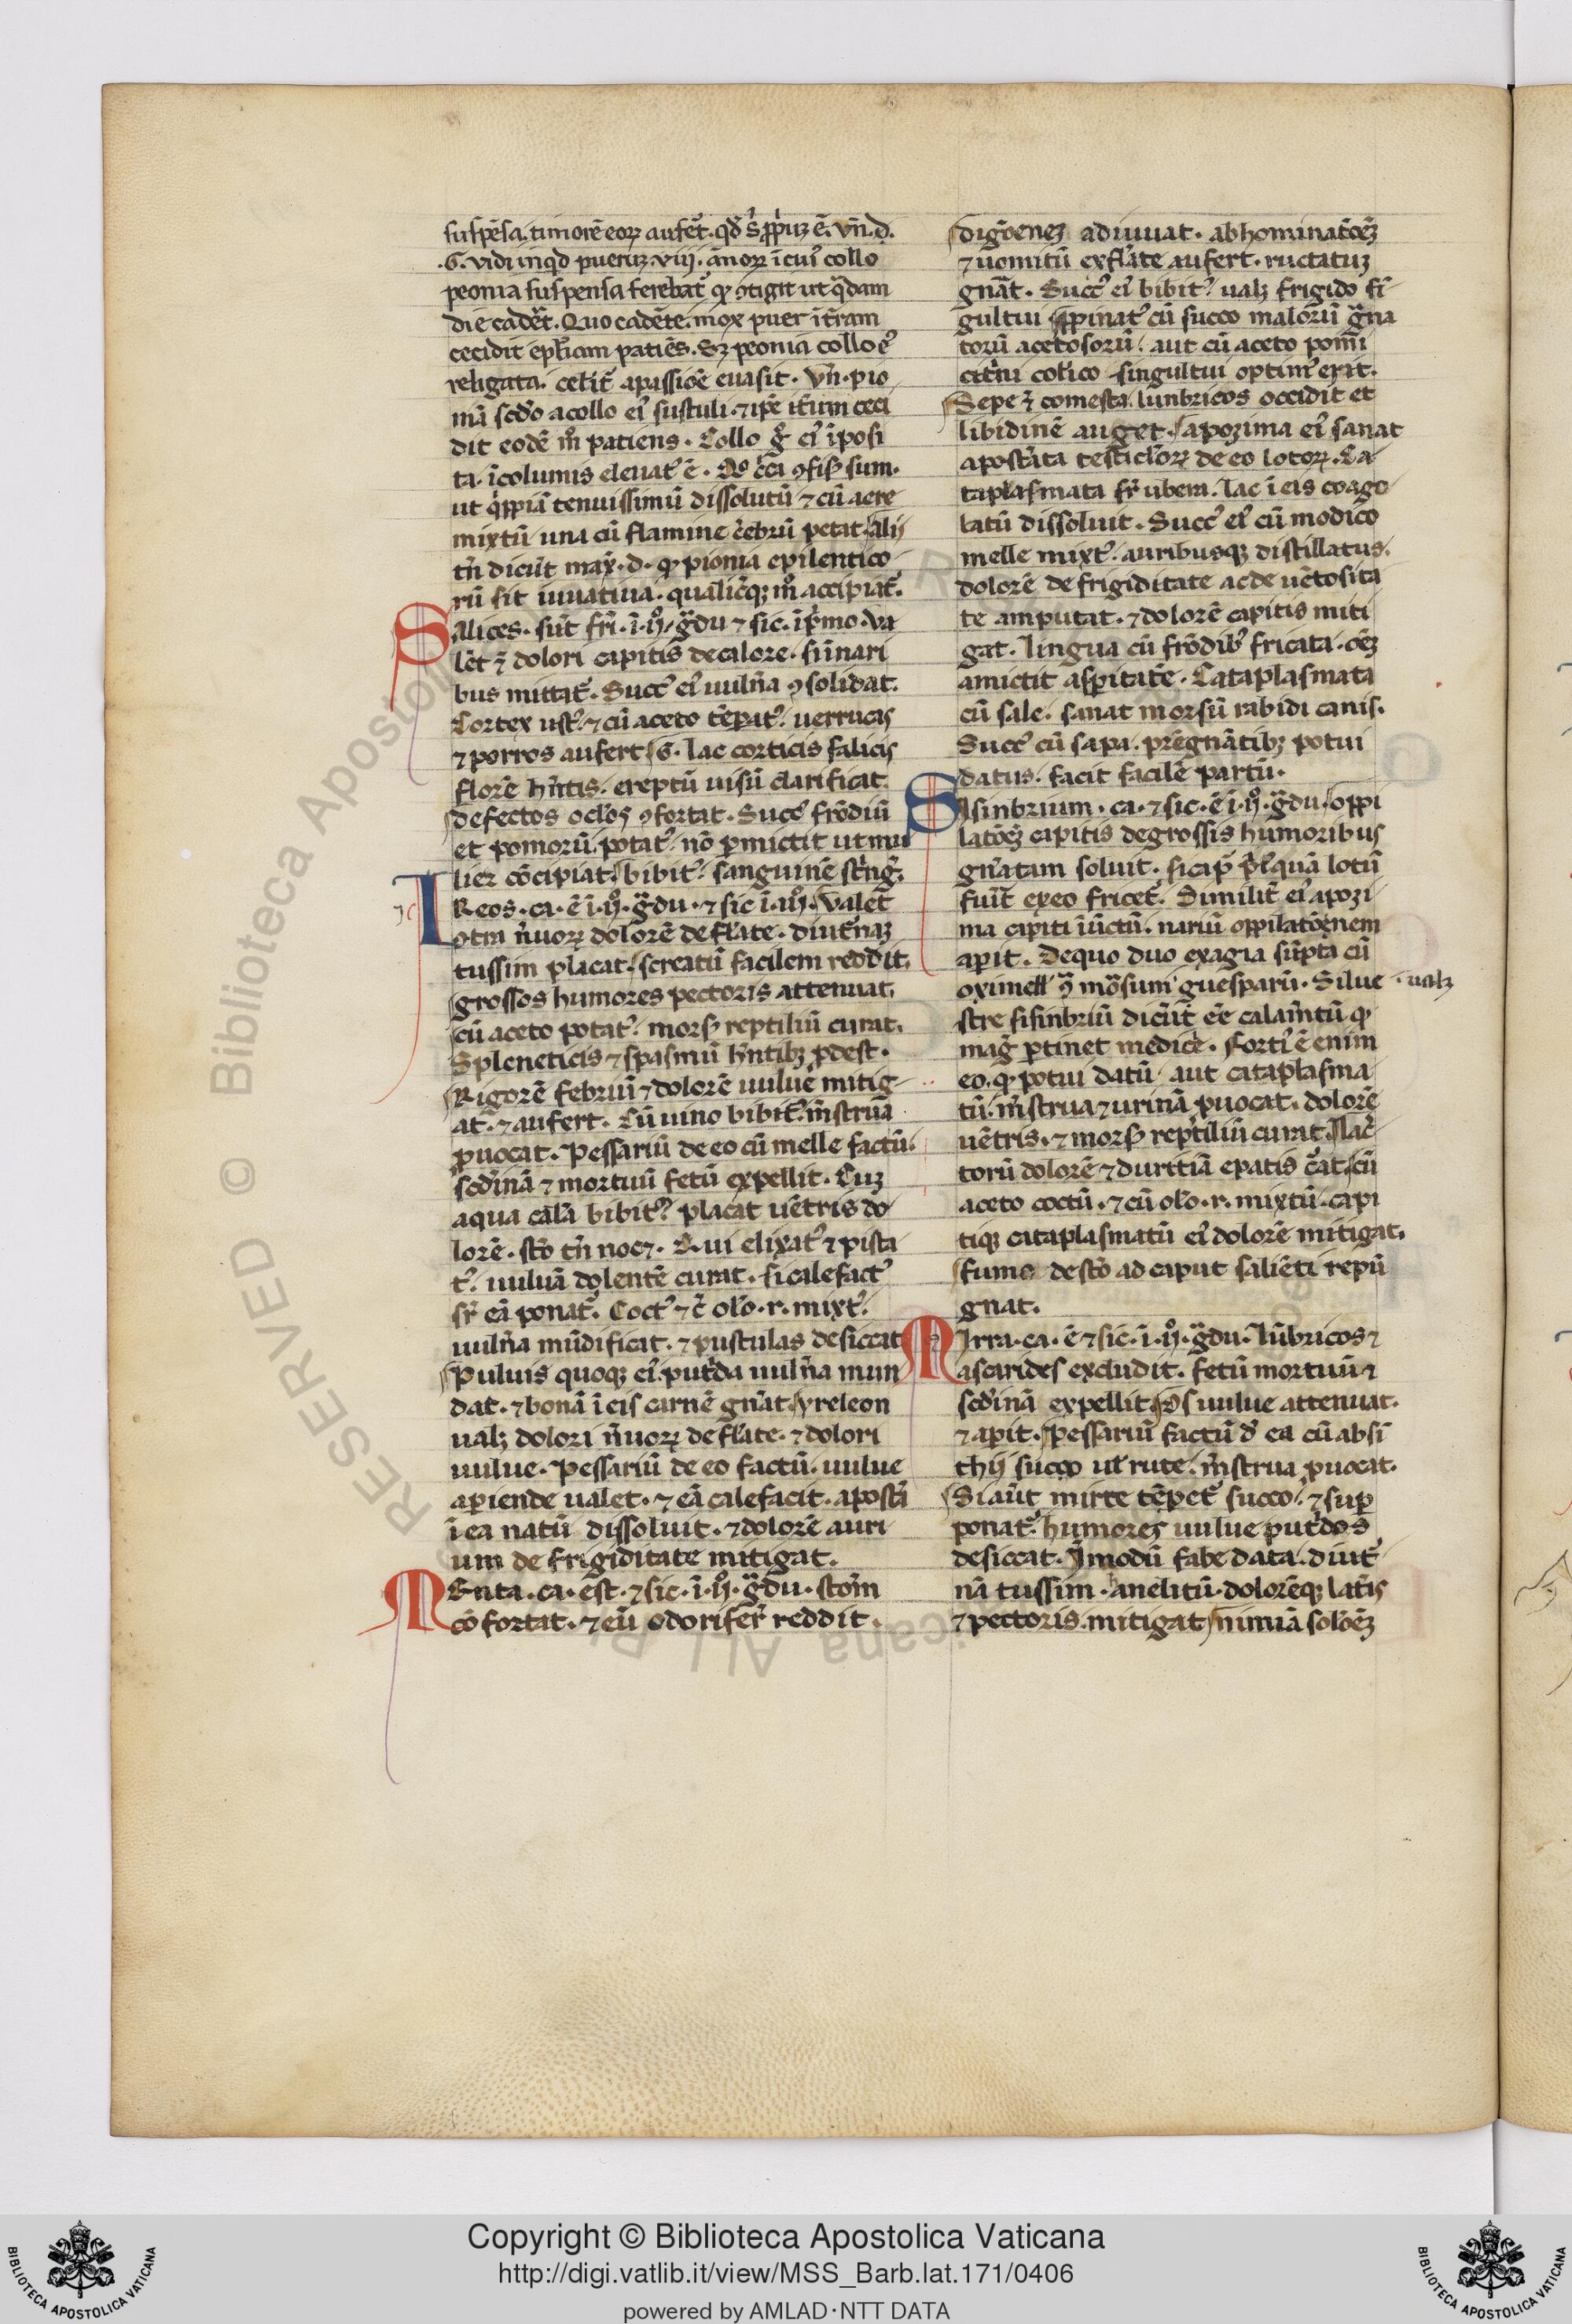 suspēsa. timorē eoꝝ aufert.
.G. vidi inqd pueruꝫ .viij. ānoꝝ ī cuiꝰ collo
peonia suspensa ferebat᷑ ꝙ ꝯtigit ut q̄dam
die cadēt. Quo cadēte. mox puer ī t̄ram
cecidit patiēs. Sꝫ peonia collo eiꝰ
religata. celit᷑ a passiōe euasit.
acollo eiꝰ sustuli. ⁊ ip̄e it̄um ceci
dit eodē mͦ patiens. Collo gͦ eiꝰ īposi
ta. īcolumis eleuatꝰ ē. sum.
ut tenuissimū dissolutū ⁊ cū aere
mixtū una cū flamine c̄ebrū petat. Alij
tn̄ dicūt . ꝙ pionia epilentico
rū sit iuuatiua. qualic̄qꝫ mͦ accipiat᷑.
Salices. sūt fri᷑. ī .ijͦ. g̃du ⁊ sic. ī p̄mo. va
lēt dolori capitis de calore. si ī nari
bus mittat᷑. Succꝰ eiꝰ uuln̄a ꝯsolidat.
Cortex ustꝰ. ⁊ cū aceto tēpatꝰ. uerrucas
⁊ porros aufert. G. lac corticis salicis
florē hn̄tis. ereptū uisū clarificat.
defectos oclos ꝯfortat. Succꝰ frōdiū
et pomorū. potatꝰ. nō ꝑmictit ut mu
lier cōcipiat. bibitꝰ. sanguinē st̄ngͥ.
Ireos. ca. ē ī .ijͦ. g̃du. ⁊ sic ī .iijͦ. Valet
ꝯtra n̄uoꝝ dolorē de flate. diut᷑naꝫ
tussim placat. screatū facilem reddit.
grossos humores pectoris attenuat.
cū aceto potatꝰ. morsꝰ reptiliū curat.
Spleneticis ⁊ spasmū hn̄tibꝫ ꝓdest.
Rigorē febriū ⁊ dolorē uulue mitig-
at. ⁊ aufert. Cū uino bibitꝰ. m̄strua
ꝓuocat. Pessariū de eo cū melle factū.
scd̄inā ⁊ mortuū fetū expellit. Cuꝫ
aqua cālā bibitꝰ. placat uētris do
lorē. sto tn̄ noc᷑. D. ui elixatꝰ ⁊ pista
tꝰ. uuluā dolentē curat. si calefactꝰ
sr̄ eā ponat᷑. Coctꝰ ⁊ c̄ olo. r. mixtꝰ.
uuln̄a mūdificat. ⁊ pustulas desiccat
Puluis quoqꝫ eiꝰ. put᷑da uuln̄a mun
dat. ⁊ bonā ī eis carnē gn̄at. yreleon
ualꝫ dolori n̄uoꝝ de flate. ⁊ dolori
uulue. Pessariū de eo factū. uulue
apiende ualet. ⁊ eā calefacit. apostā
ī ea natū dissoluit. ⁊ dolorē auri
um de frigiditate mitigat.
Menta. ca. est. ⁊ sic. ī .ijͦ. g̃du. stom̄
cōfortat. ⁊ eū odoriferꝰ reddit.
digōeneꝫ adiuuat. abhominatōeꝫ
⁊ uomitū ex flate aufert. ructatuꝫ
gn̄at. Succꝰ eiꝰ bibitꝰ. ualꝫ frigido si
gultui ꝓpinatꝰ cū succo malorū g̃na
torū acetosorū. aut cū aceto pomi
cit᷑ni colico singultui optimꝰ erit.
Sepe comesta. lunbricos occidit et
libidinē auget. apozima eiꝰ sanat
apost̄ata testicloꝝ de eo lotoꝝ. Ca
taplasmata sr̄ ubera. lac ī eis coago
latū dissoluit. Succꝰ eiꝰ cū modico
melle mixtꝰ. auribusqꝫ distillatus.
dolorē de frigiditate ac de uētosita
te amputat. ⁊ dolorē capitis miti
gat. Lingua cū frōdibꝰ fricata. oēꝫ
amictit aspitatē. Cataplasmata
cū sale. sanat morsū rabidi canis.
Succꝰ cū sapa. pregnātibꝫ potui
datus. facit facilē partū.
Sisinbrium. ca. ⁊ sic. ē ī .ijͦ. g̃du. oppi
latōeꝫ capitis de grossis humoribus
gn̄atam soluit. si cap̄ plquā lotū
fuit ex eo fricet᷑. Similit᷑ eiꝰ apozi
ma capiti iūctū. nariū oppilatōenem
apit. De quo duo exagia sūpta cū
oximell ꝯ᷑ morsum guesparū. Silue . ualꝫ
stre sisinbriū dicūt ēe calam̄tū ꝙ
mag᷑ ꝑtinet medicīe. fortiꝰ ē enim
eo. ꝙ potui datū aut cataplasma
tū. m̄strua ⁊ urinā ꝓuocat. dolorē
uētris. ⁊ morsꝰ reptiliū curat. lac᷑
torū dolorē ⁊ duritiā epatis c᷑at. cū
aceto coctū. ⁊ cū olo. r. mixtū. capi
tiqꝫ cataplasmatū eiꝰ dolorē mitigat.
fumo desto ad caput saliēti repū
gnat.
Mirra. ca. ē ⁊ sic. ī .ijͦ. g̃du. lūbricos ⁊
ascarides excludit. fetū mortuū ⁊
scd̄inā expellit. Os uulue attenuat.
⁊ apit. Pessariū factū d̄ ea cū absī
thij succo ul̄ rute. m̄strua ꝓuocat.
Si aūt mirte tēpet᷑ succo. ⁊ sup
ponat᷑. humores uulue put᷑dos
desiccat. modū fabe data. diut᷑
nā tussim. anelitū. dolorēqꝫ lat᷑is
⁊ pectoris. mitigat. nimiā solōeꝫ
Copyright © Biblioteca Apostolica Vaticana
http://digi.vatlib.it/view/MSS_Barb.lat.171/0406
powered by AMLAD·NTT DATA